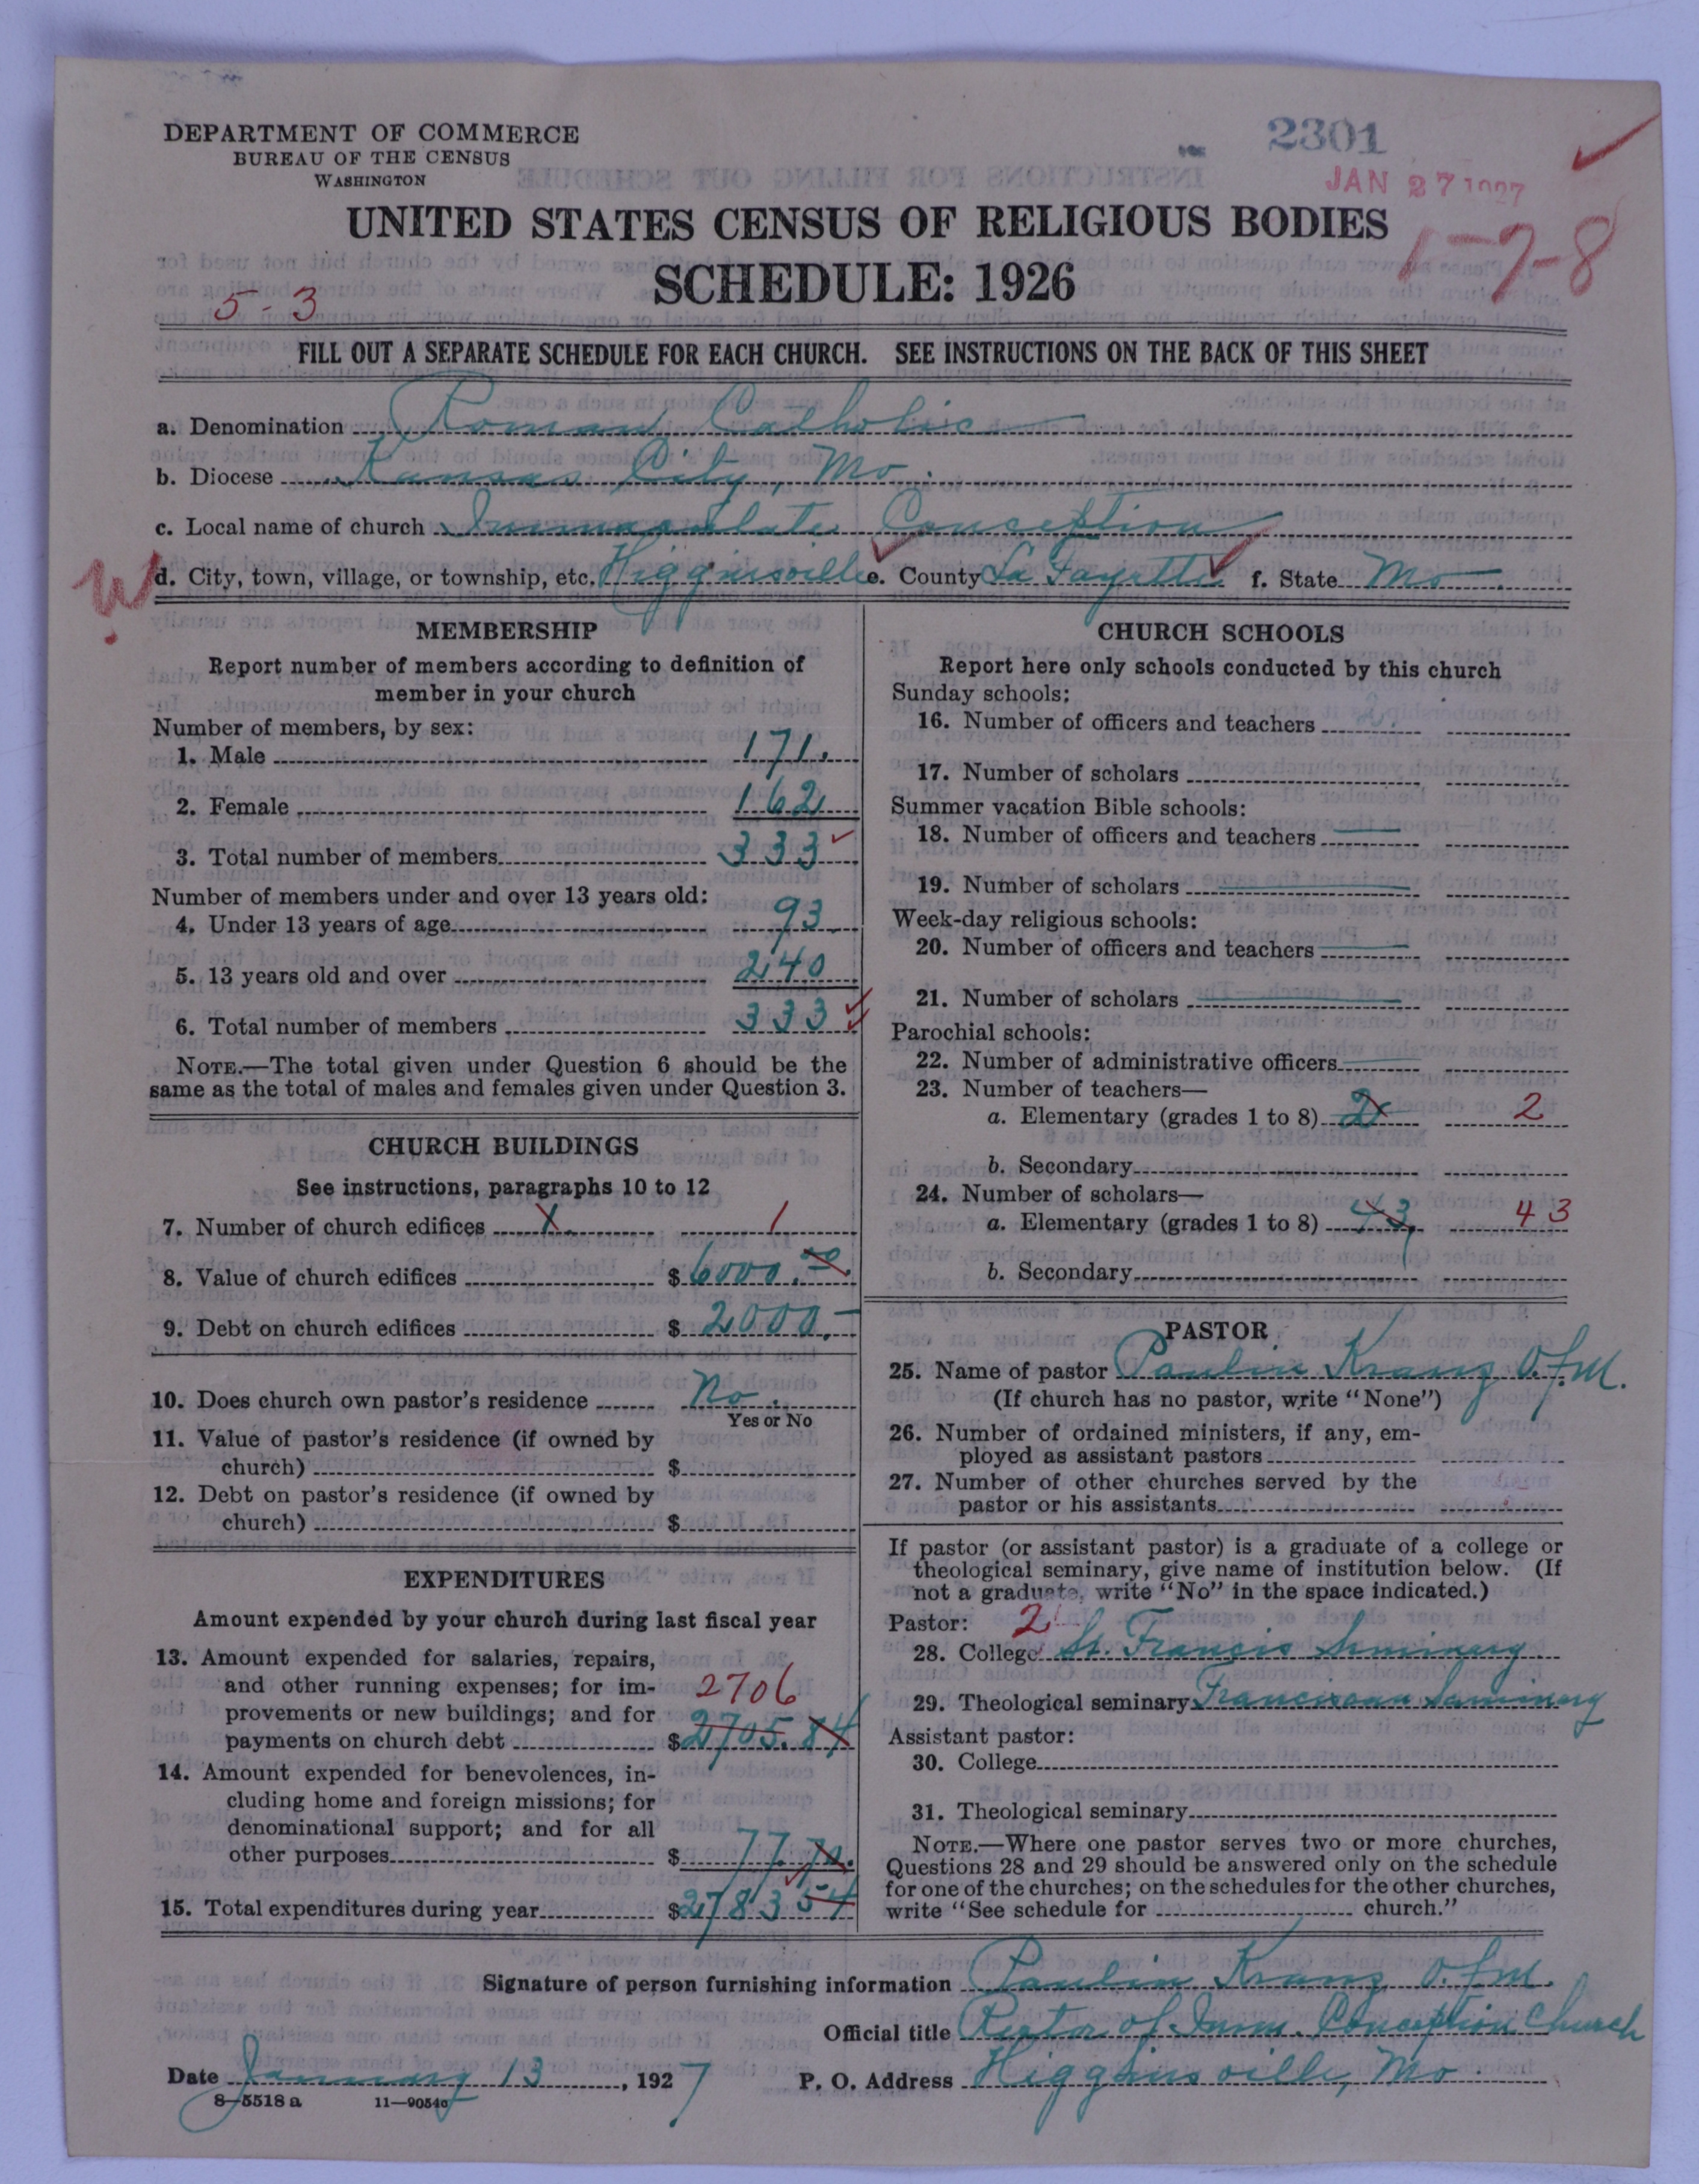 DEPARTMENT OF COMMERCE
BUREAU OF THE CENSUS
WASHINGTON
2301
JAN 27 1927
UNITED STATES CENSUS OF RELIGIOUS BODIES
SCHEDULE: 1926
1-7-8
5-3
FILL OUT A SEPARATE SCHEDULE FOR EACH CHURCH. SEE INSTRUCTIONS ON THE BACK OF THIS SHEET
a. Denomination Roman Catholic
b. Diocese Kansas City, Mo.
c. Local name of church Immaculate Conception
W d. City, town, village, or township, etc. Higginsville e. County La Fayette f. State Mo.
MEMBERSHIP
Report number of members according to definition of
member in your church
Number of members, by sex:
1. Male 171.
2. Female 162
3. Total number of members 333
Number of members under and over 13 years old:
4. Under 13 years of age 93
5. 13 years old and over 240
6. Total number of members 333
NOTE.—The total given under Question 6 should be the
same as the total of males and females given under Question 3.
CHURCH BUILDINGS
See instructions, paragraphs 10 to 12
7. Number of church edifices 1. 1
8. Value of church edifices $ 6000.00
9. Debt on church edifices $ 2000.—
10. Does church own pastor's residence No.
Yes or No
11. Value of pastor's residence (if owned by
church) $
12. Debt on pastor's residence (if owned by
church) $
EXPENDITURES
Amount expended by your church during last fiscal year
13. Amount expended for salaries, repairs,
and other running expenses; for im-
provements or new buildings; and for
2706
payments on church debt $ 2705.84
14. Amount expended for benevolences, in-
cluding home and foreign missions; for
denominational support; and for all
other purposes $ 77.70.
15. Total expenditures during year $ 2783 54
CHURCH SCHOOLS
Report here only schools conducted by this church
Sunday schools:
16. Number of officers and teachers
17. Number of scholars
Summer vacation Bible schools:
18. Number of officers and teachers
19. Number of scholars
Week-day religious schools:
20. Number of officers and teachers
21. Number of scholars
Parochial schools:
22. Number of administrative officers
23. Number of teachers—
a. Elementary (grades 1 to 8) 2 2
b. Secondary
24. Number of scholars—
a. Elementary (grades 1 to 8) 43 43
b. Secondary
PASTOR
25. Name of pastor Paulin Kranz O.F.M.
(If church has no pastor, write "None")
26. Number of ordained ministers, if any, em-
ployed as assistant pastors
27. Number of other churches served by the
pastor or his assistants
If pastor (or assistant pastor) is a graduate of a college or
theological seminary, give name of institution below. (If
not a graduate, write "No" in the space indicated.)
Pastor: 2
28. College St. Francis Seminary
29. Theological seminary Franciscan Seminary
Assistant pastor:
30. College
31. Theological seminary
NOTE.—Where one pastor serves two or more churches,
Questions 28 and 29 should be answered only on the schedule
for one of the churches; on the schedules for the other churches,
write "See schedule for church."
Signature of person furnishing information Paulin Kranz O.F.M.
Official title Rector of Imm. Conception Church
Date January 13, 1927
P. O. Address Higginsville, Mo
8-5518 a 11-9054a